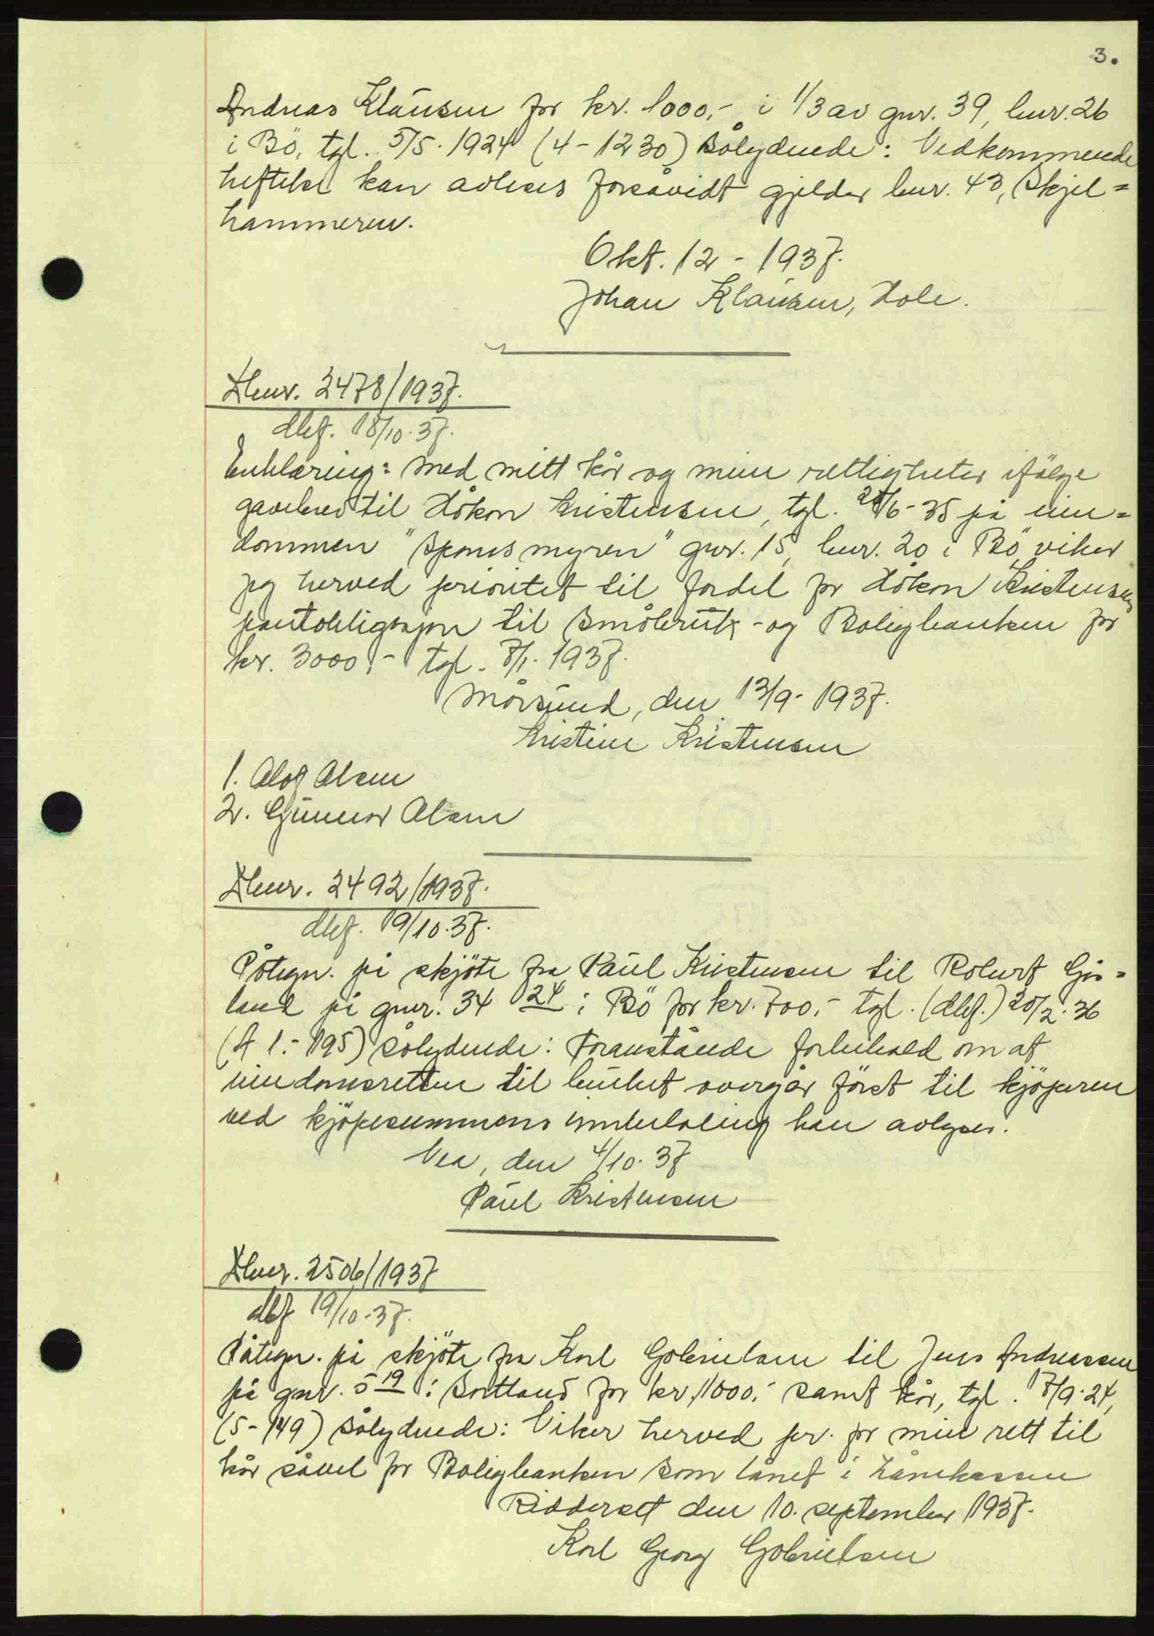 3.
Andreas Klausen for kr. 1000,- i 1/3 av gnr. 39, bnr. 26
i Bö, tgl. 5/5-1924 (4-1230) sålydende: Vedkommende
heftelse kan avleses forsåvidt gjelder bnr. 43, Skjel=
hammeren.
Okt. 12 - 1937.
Johan Klausen, Hole.
Dbnr. 2478/1937.
dbf. 18/10-37.
Erklæring: Med mitt kår og mine rettigheter ifölge
gavebrev til Håkon Kristensen, tgl. /6-35 på eien=
dommen " " gnr. 15, bnr. 20 i Bö viker
jeg herved prioritet til fordel for Håkon Kristensens
pantobligasjon til Småbruk- og Boligbanken for
kr. 3000,- tgl. 8/1-1937.
Mårsund, den 13/9-1937.
Kristine Kristensen
1. Olaf Olsen
2. Gunnar Olsen
Dbnr. 2492/1937.
dbf. 19/10-37.
Påtegn. på skjöte fra Paul Kristensen til Robert Gis=
land på gnr. 34 24 i Bö for kr. 700,- tgl. (dbf.) 20/2-36
(A 1.-195) sålydende: Foranstående forbehold om at
eiendomsretten til bruket overgår först til kjöperen
ved kjöpesummens innbetaling kan avlyses.
Vea, den 4/10-37
Paul Kristensen
Dbnr. 2506/1937
dbf 19/10-37.
Påtegn. på skjöte fra Karl Gabrielsen til Jens Andreassen
på gnr. 5 19 i Sortland for kr. 1000,- samt kår, tgl. 17/9-24,
(5-149) sålydende: Viker herved pr. for min rett til
kår såvel for Boligbanken som lånet i Lånekassen
Ridderset den 10. september 1937.
Karl Georg Gabrielsen